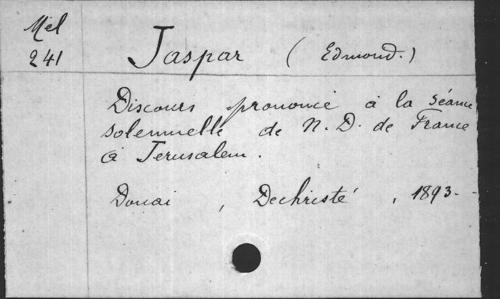 Mel
241
Jaspar (Edmond.)
Discours prononcé à la séance
solennelle de N. D. de France
à Jerusalem.
Douai, Dechristé, 1893-